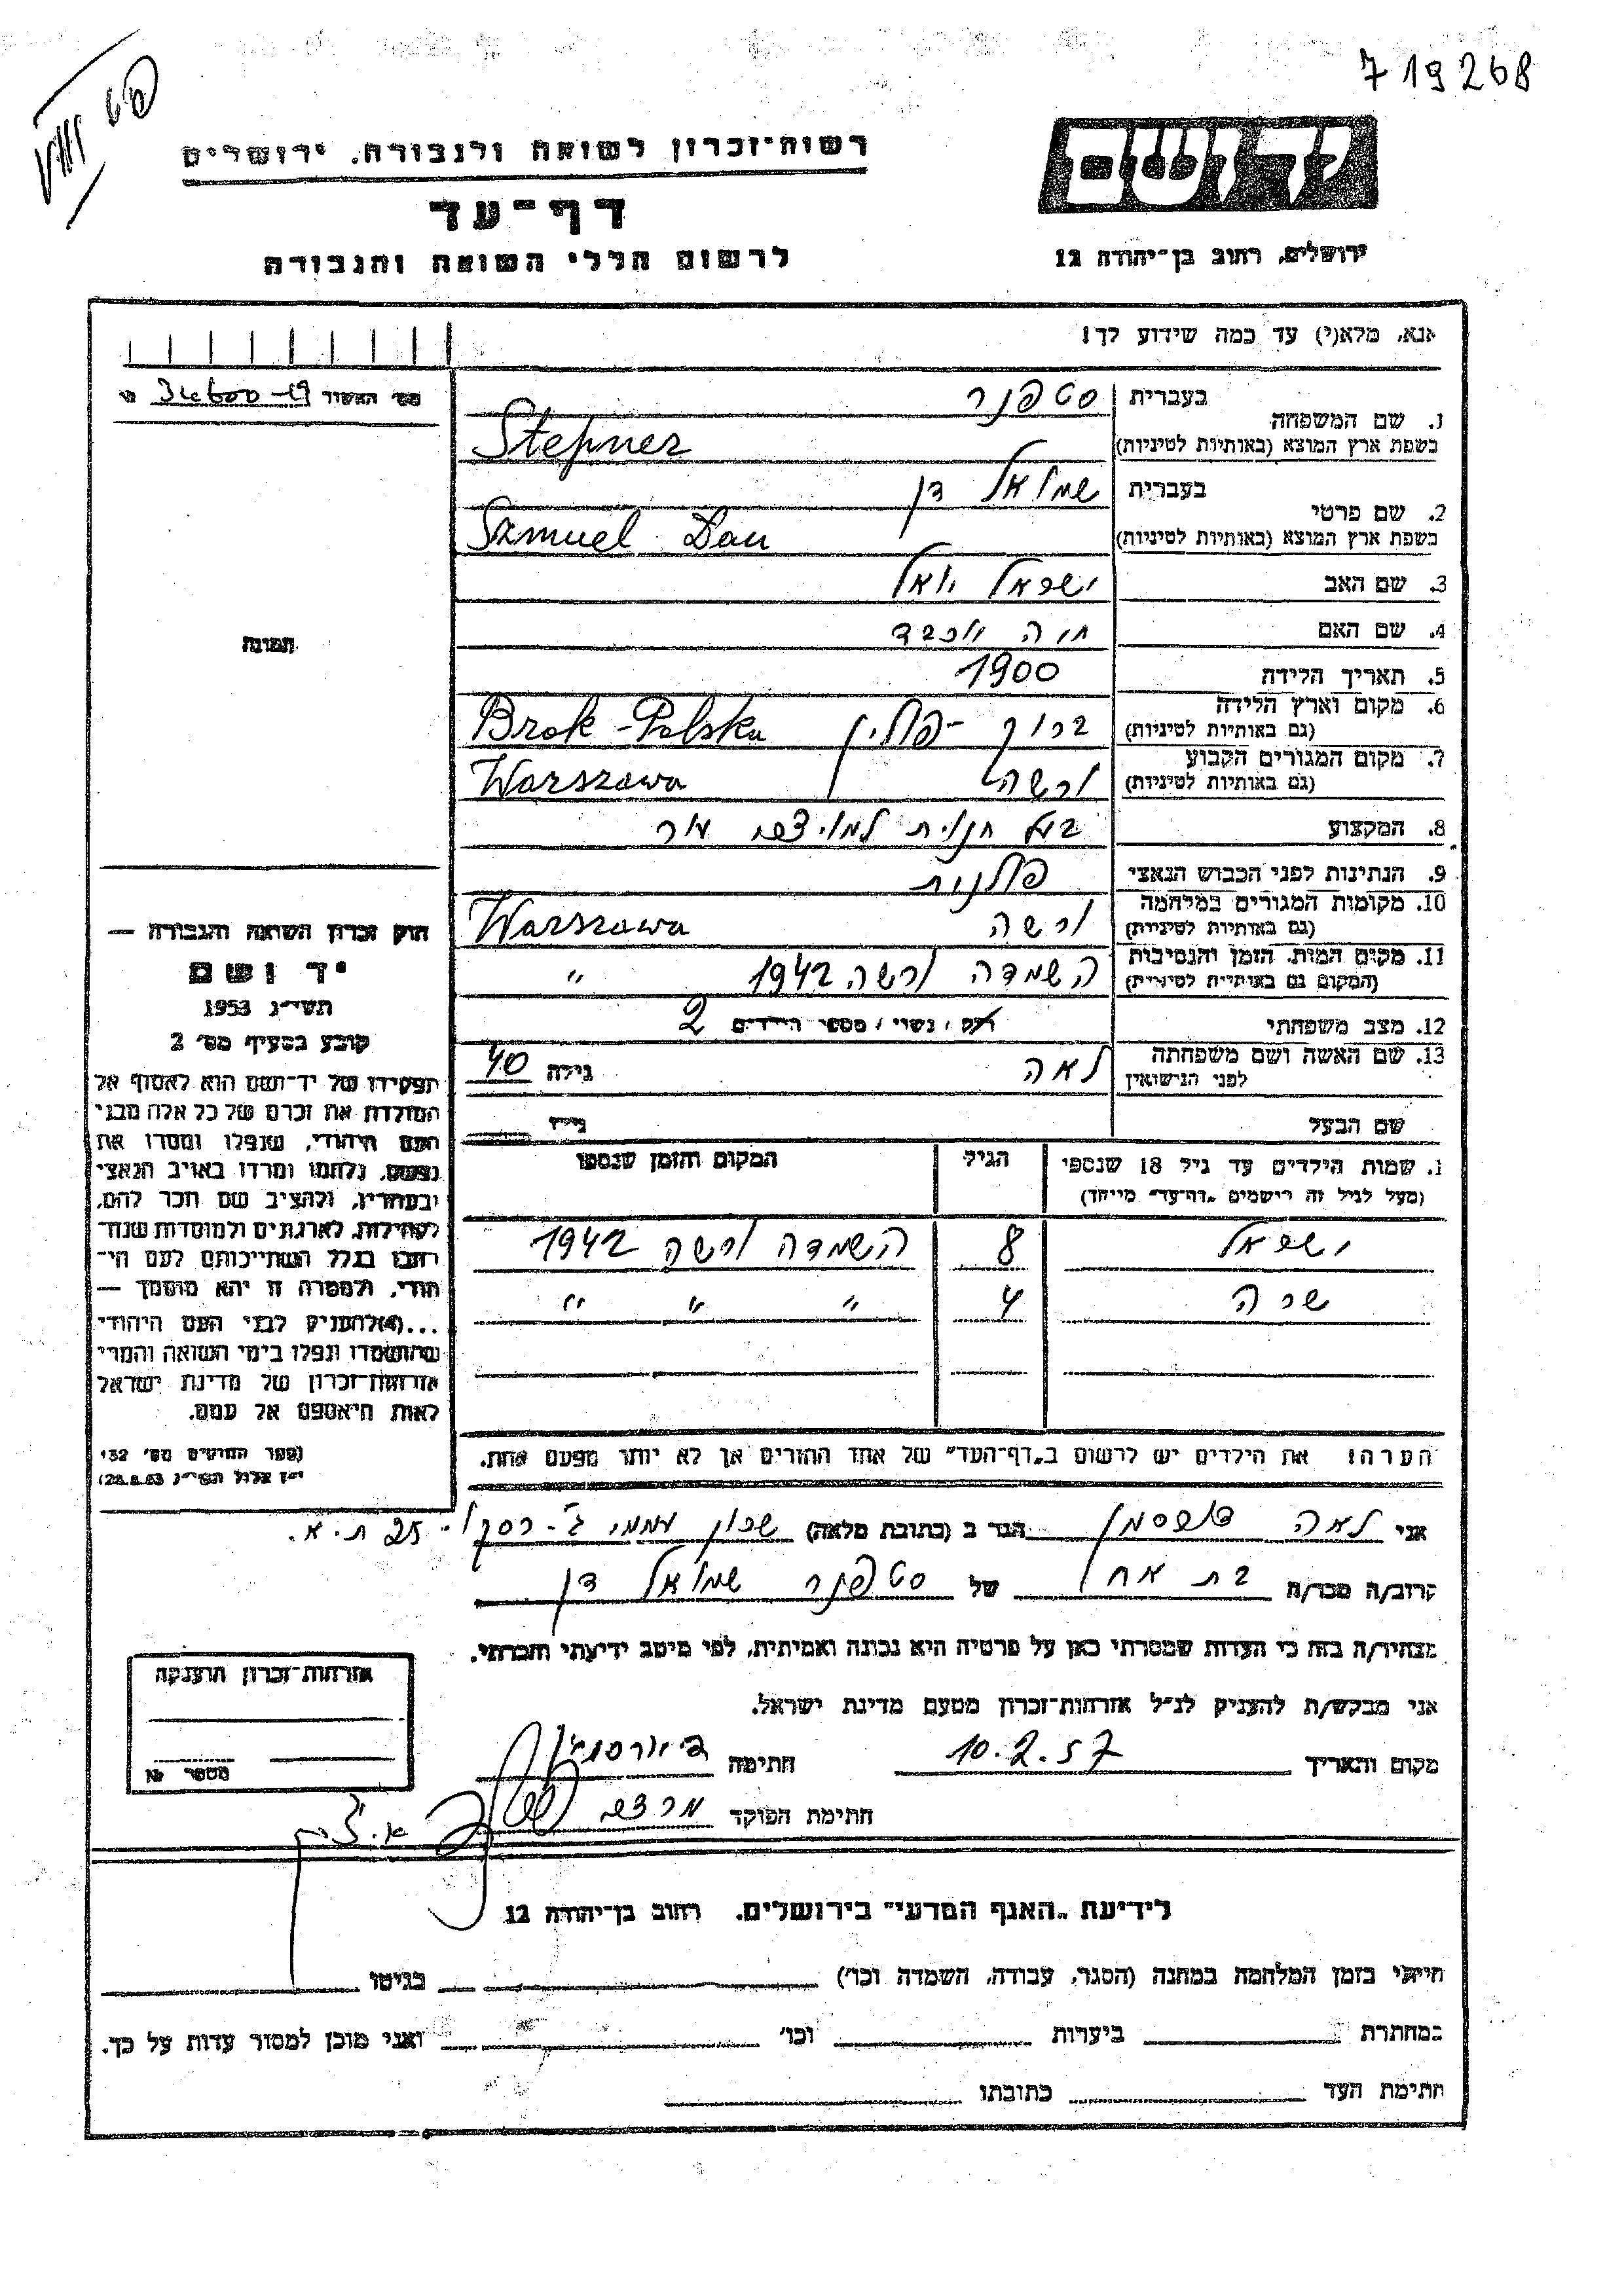 719268
יד ושם
רשות־זכרון לשואה ולגבורה, ירושלים
דף־עד
לרשום חללי השואה והגבורה
ירושלים, רחוב בן־יהודה 12
אנא, מלא(י) עד כמה שידוע לך!
מס׳ האשור
1. שם המשפחה בעברית סטפנר
בשפת ארץ המוצא (באותיות לטיניות) Stepner
2. שם פרטי בעברית שמואל דן
בשפת ארץ המוצא (באותיות לטיניות) Szmuel Dan
3. שם האב ישראל יואל
4. שם האם חוה יוכבד
5. תאריך הלידה 1900
6. מקום וארץ הלידה (גם באותיות לטיניות) ברוק - פולין Brok - Polska
7. מקום המגורים הקבוע (גם באותיות לטיניות) ורשה Warszawa
8. המקצוע בעל חנות למוצרי עור
9. הנתינות לפני הכבוש הנאצי פולנית
10. מקומות המגורים במלחמה (גם באותיות לטיניות) ורשה Warszawa
11. מקום המות, הזמן והנסיבות (המקום גם באותיות לטיניות) השמדה ורשה 1942 "
12. מצב משפחתי רווק / נשוי / מספר הילדים 2
13. שם האשה ושם משפחתה לפני הנישואין לאה גילה 40
שם הבעל גילו
שמות הילדים עד גיל 18 שנספו הגיל המקום והזמן שנספו
(מעל לגיל זה רושמים "דף־עד" מיוחד)
ישראל 8 השמדה ורשה 1942
שרה 4 " " "
הערה! את הילדים יש לרשום ב"דף־העד" של אחד ההורים אך לא יותר מפעם אחת.
תמונה
חוק זכרון השואה והגבורה —
יד ושם
תשי״ג 1953
קובע בסעיף מס׳ 2
תפקידו של יד־ושם הוא לאסוף אל
המולדת את זכרם של כל אלה מבני
העם היהודי, שנפלו ומסרו את
נפשם, נלחמו ומרדו באויב הנאצי
ובעוזריו, ולהציב שם וזכר להם,
לקהילות, לארגונים ולמוסדות שנח־
רבו בגלל השתייכותם לעם הי־
הודי, ולמטרה זו יהא מוסמך —
...(4) להעניק לבני העם היהודי
שהושמדו ונפלו בימי השואה והמרי
אזרחות־זכרון של מדינת ישראל
לאות היאספם אל עמם.
(ספר החוקים מס׳ 132
י״ז אלול תשי״ג 28.8.53)
אני לאה הגר ב (כתובת מלאה) שכון עממי ג׳ - 25 ת.א.
קרוב/ה מכר/ה בת אח של סטפנר שמואל דן
מצהיר/ה בזה כי העדות שמסרתי כאן על פרטיה היא נכונה ואמיתית, לפי מיטב ידיעתי והכרתי.
אני מבקש/ת להעניק לנ״ל אזרחות־זכרון מטעם מדינת ישראל.
מקום ותאריך 10.2.57 חתימה
חתימת הפוקד
אזרחות־זכרון הוענקה
מספר №
לידיעת "האגף המדעי" בירושלים, רחוב בן־יהודה 12
הייתי בזמן המלחמה במחנה (הסגר, עבודה, השמדה וכו׳) בגיטו
במחתרת ביערות וכו׳ ואני מוכן למסור עדות על כך.
חתימת העד כתובתו